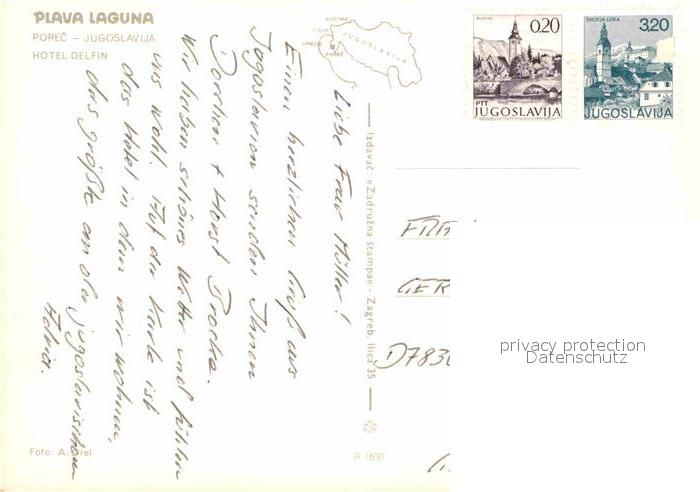 PLAVA LAGUNA
POREČ — JUGOSLAVIJA
HOTEL DELFIN
AUSTRIA
ITALIA
VENEZIA
POREČ
JUGOSLAVIJA
Liebe Frau Müller!
Einen herzlichen Gruß aus
Jugoslavien senden Ihnen
Dorchen + Horst
Wir haben schönes Wetter und fühlen
uns wohl. Auf der Karte ist
das Hotel in dem wir wohnen,
das größte an der jugoslavischen
Adria.
Foto: A.
Izdavač: »Zadružna štampa« - Zagreb, Ilica 35
R-1680
BLED
0,20
PTT
JUGOSLAVIJA
ŠKOFJA LOKA
3,20
JUGOSLAVIJA
FRA
GER
D783
privacy protection
Datenschutz